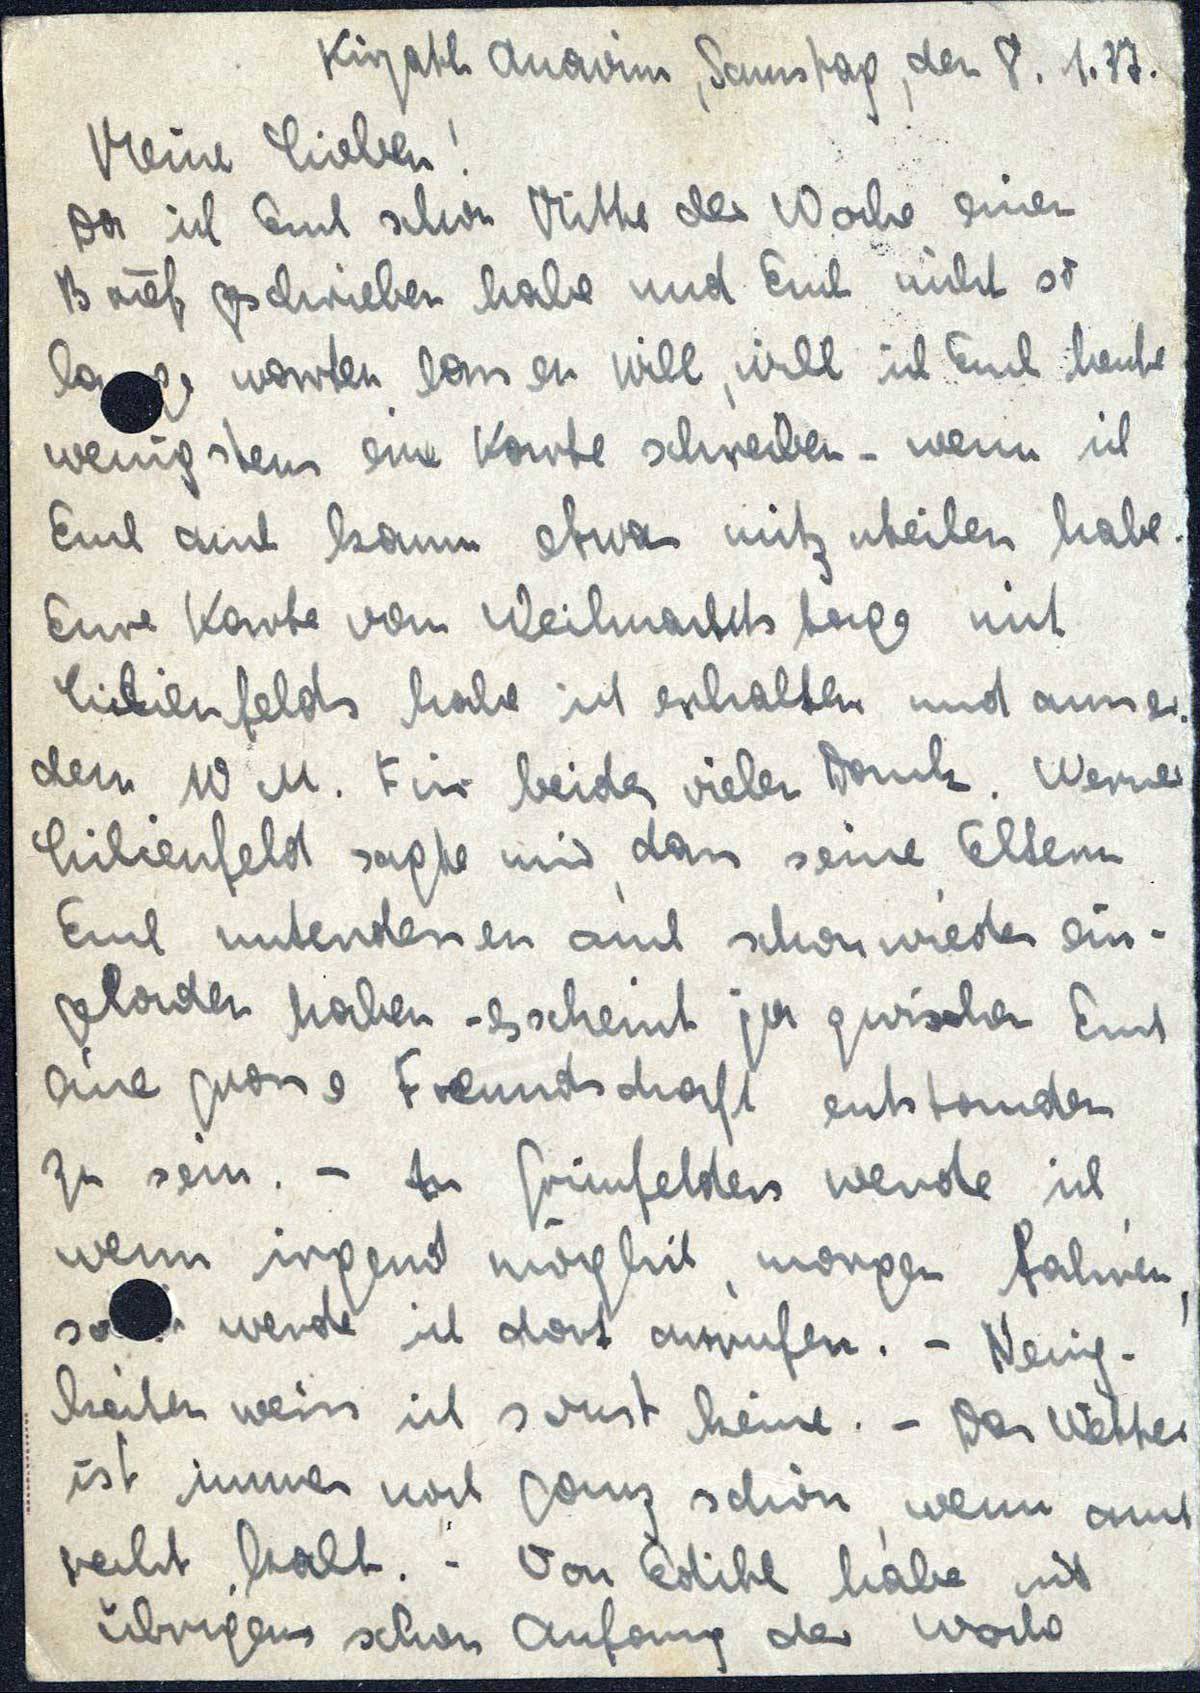 Kirjath Anavim, Samstag, den 8. 1. 37.
Meine Lieben!
Da ich Euch schon Mitte der Woche einen
Brief geschrieben habe und Euch nicht so
lange warten lassen will, will ich Euch heute
wenigstens eine Karte schreiben - wenn ich
Euch auch kaum etwas mitzuteilen habe.
Eure Karte vom Weihnachtstage mit
Lilienfelds habe ich erhalten und ausser
dem 10 M. Für beides vielen Dank. Werner
Lilienfeld sagte mir, dass seine Eltern
Euch unterdessen auch schon wieder ein-
geladen haben - es scheint ja zwischen Euch
eine grosse Freundschaft entstanden
zu sein. - Zu Grünfelders werde ich,
wenn irgend möglich, morgen fahren,
sonst werde ich dort anrufen. - Neuig-
keiten weiss ich sonst keine. - Das Wetter
ist immer noch ganz schön, wenn auch
recht kalt. - Von Edith habe ich
übrigens schon Anfang der Woche